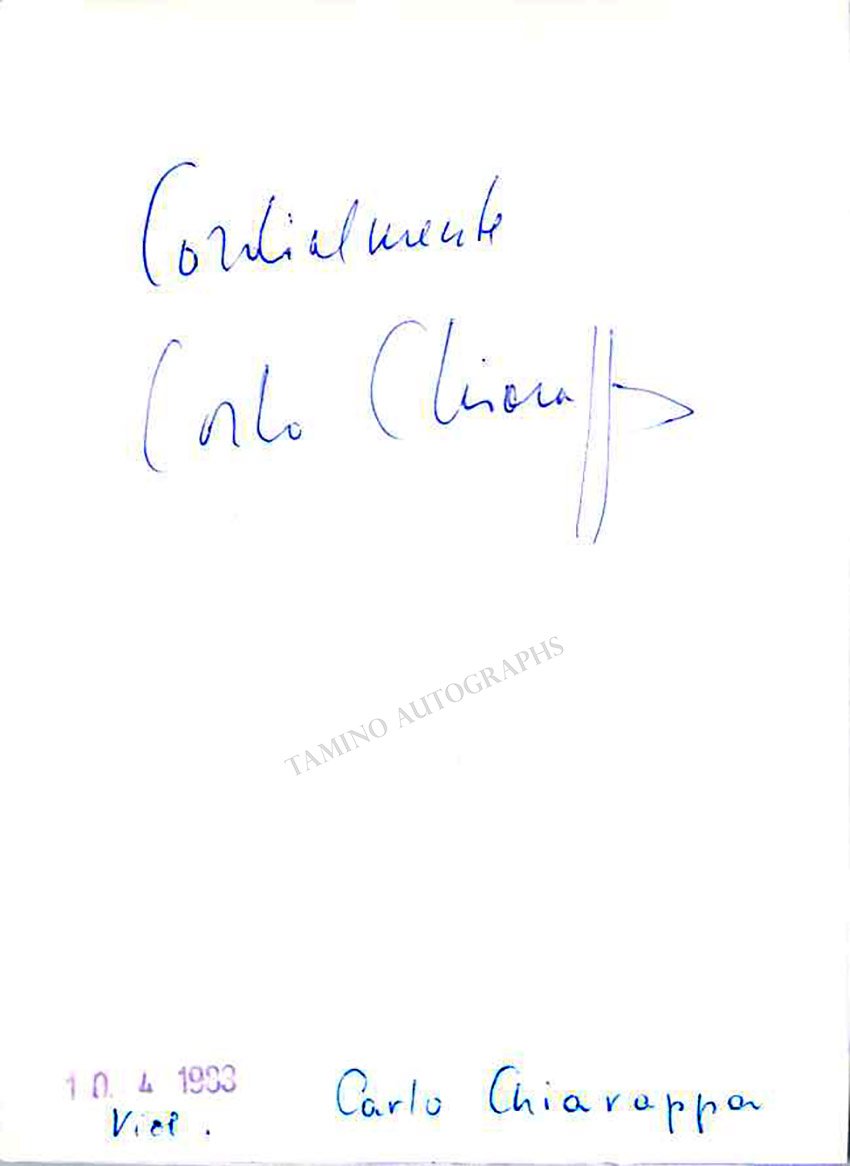 Cordialmente
Carlo Chiarappa
TAMINO AUTOGRAPHS
10. 4 1993
Viol.
Carlo Chiarappa